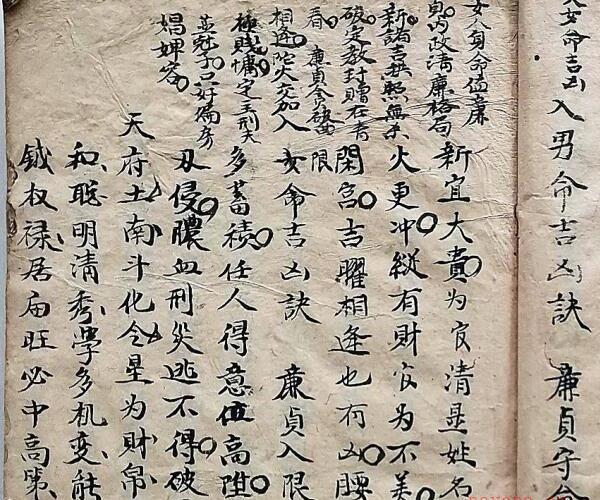 女命吉凶
入男命吉凶訣 廉貞守命
女人身命值廉
貞內政清廉格局
新諸吉拱照無杀
破定教封贈在青
春 廉貞貪破曲
相逢陀火交加入
極賤慵定主刑夫
并尅子只好偏房
娼婢容
新宜大貴为官清是姓名
火更冲縱有財官为不美
閑宮吉曜相逢也有凶腰
限
女命吉凶訣 廉貞入限
多蓄積任人得意值高陞
丑侵膿血刑災逃不得破
天府土南斗化令星为財帛
和聪明清秀學多机变能
鉞权禄居庙旺必中高第